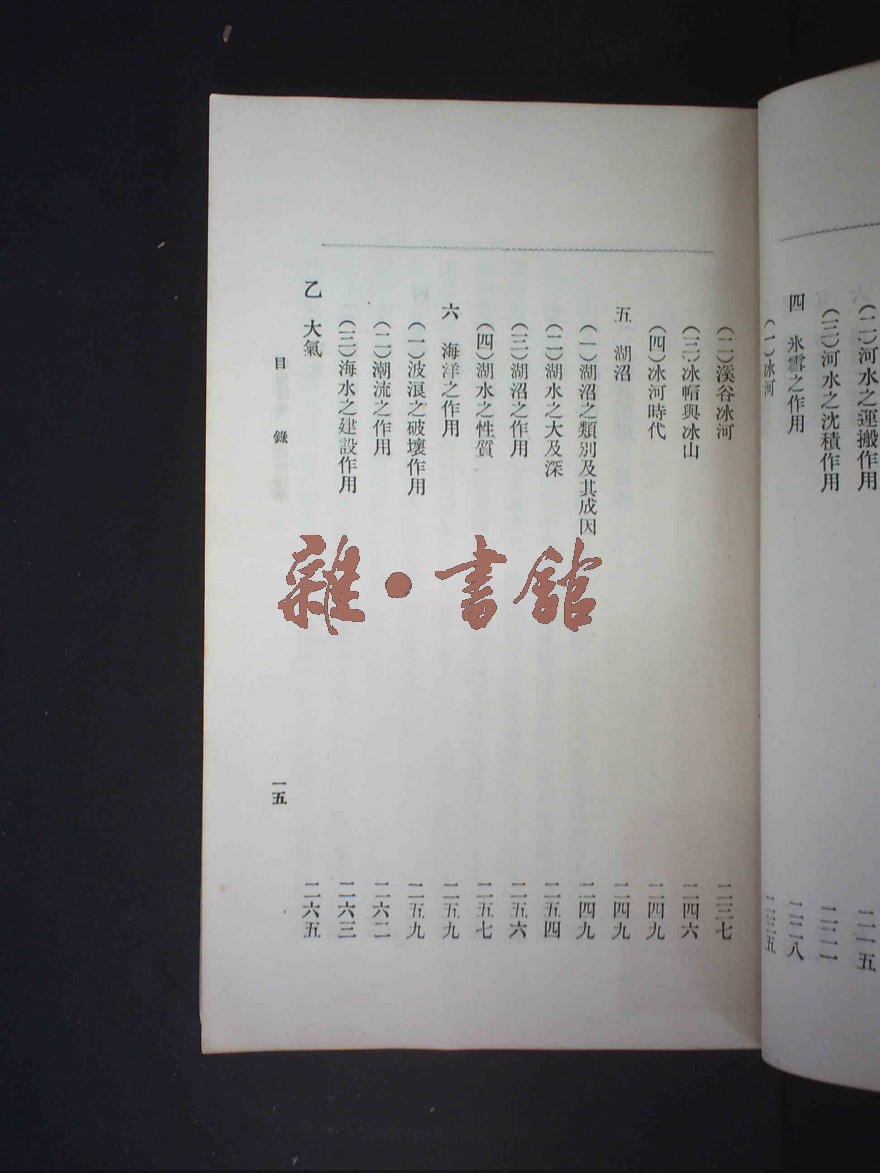 (二)河水之運搬作用 二一五
(三)河水之沈積作用 二二一
四 氷雪之作用 二二八
(一)冰河 二三五
(二)溪谷冰河 二三七
(三)冰帽與冰山 二四六
(四)冰河時代 二四九
五 湖沼 二四九
(一)湖沼之類別及其成因 二四九
(二)湖水之大及深 二五四
(三)湖沼之作用 二五六
(四)湖水之性質 二五七
六 海洋之作用 二五九
(一)波浪之破壞作用 二五九
(二)潮流之作用 二六二
(三)海水之建設作用 二六三
乙 大氣 二六五
目錄 一五
雜·書館